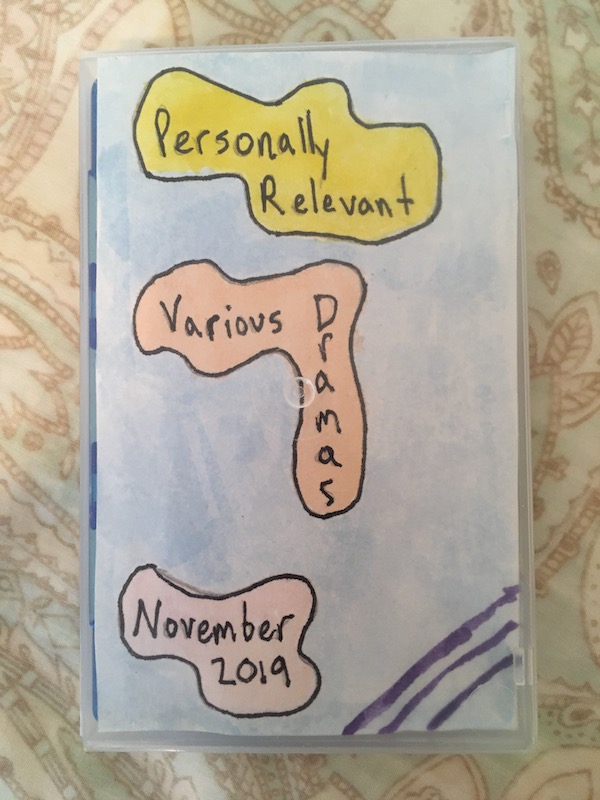 Personally
Relevant
Various Dramas
November
2019